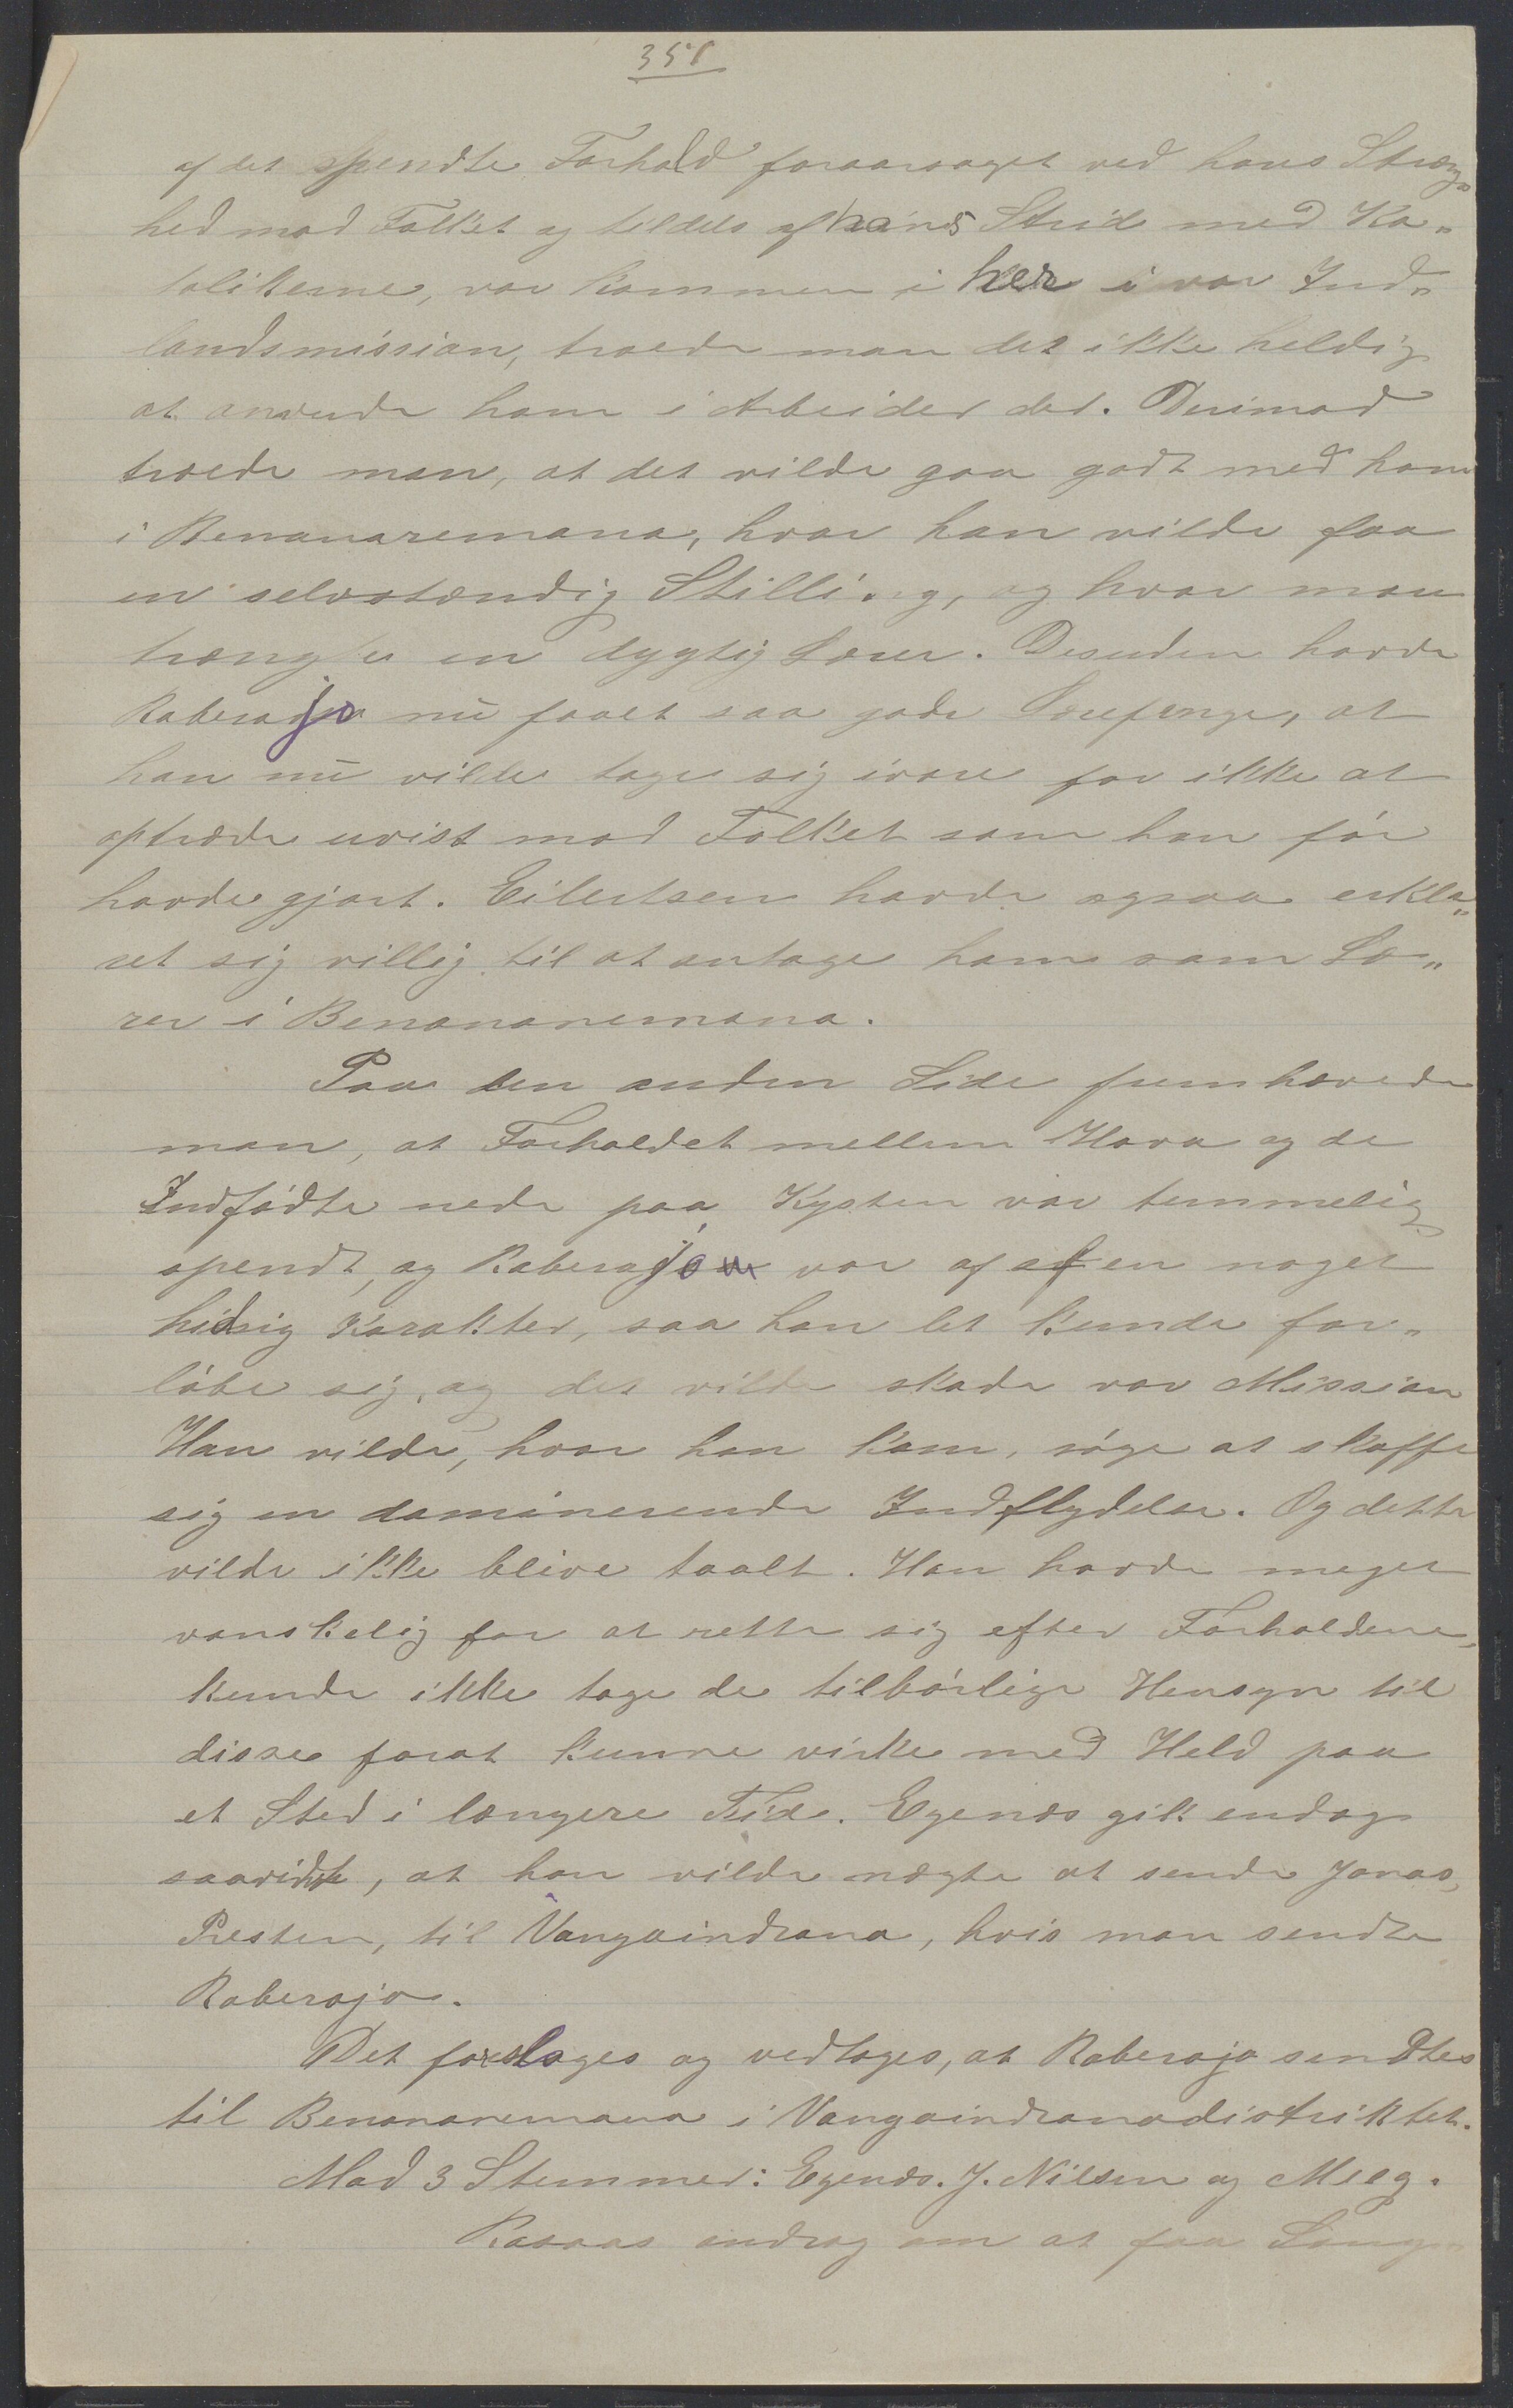 351
af det spendte Forhold foraarsaget ved hans Stræng„
hed mod Folket og tildels af hans Strid med Ka„
tolikerne, var kommen i her i vor Ind„
landsmission, troede man det ikke heldig
at anvende ham i Arbeidet der. Derimod
troede man, at det vilde gaa godt med ham
i Benanaremana, hvor han vilde faa
en selvstændig Stilling, og hvor man
trængte en dygtig Lærer. Desuden havde
Raberajo nu faaet saa gode Lærepenge, at
han nu vilde tage sig ivare for ikke at
optræde uvist mod Folket som han før
havde gjort. Eilertsen havde ogsaa erklæ„
ret sig villig til at antage ham som Læ„
rer i Benananemana.
Paa den anden Side fremhævede
man, at Forholdet mellem Hova og de
Indfødte nede paa Kysten var temmelig
spendt, og Raberajo var af en noget
hidsig Karakter, saa han let kunde for„
løbe sig, og det vilde skade vor Mission
Han vilde, hvor han kom, søge at skaffe
sig en dominerende Indflydelse. Og dette
vilde ikke blive taalt. Han havde meget
vanskelig for at rette sig efter Forholdene,
kunde ikke tage de tilbørlige Hensyn til
disse forat kunne virke med Held paa
et Sted i længere Tid. Egenæs gik endog
saavidt, at han vilde nægte at sende Jonas,
Presten, til Vangaindrana, hvis man sendte
Raberajo.
Det foresloges og vedtoges, at Raberajo sendtes
til Benananemana i Vangaindranadistriktet.
Mod 3 Stemmer: Egenæs. J. Nilsen og Meeg.
Rosaas androg om at faa Lang„